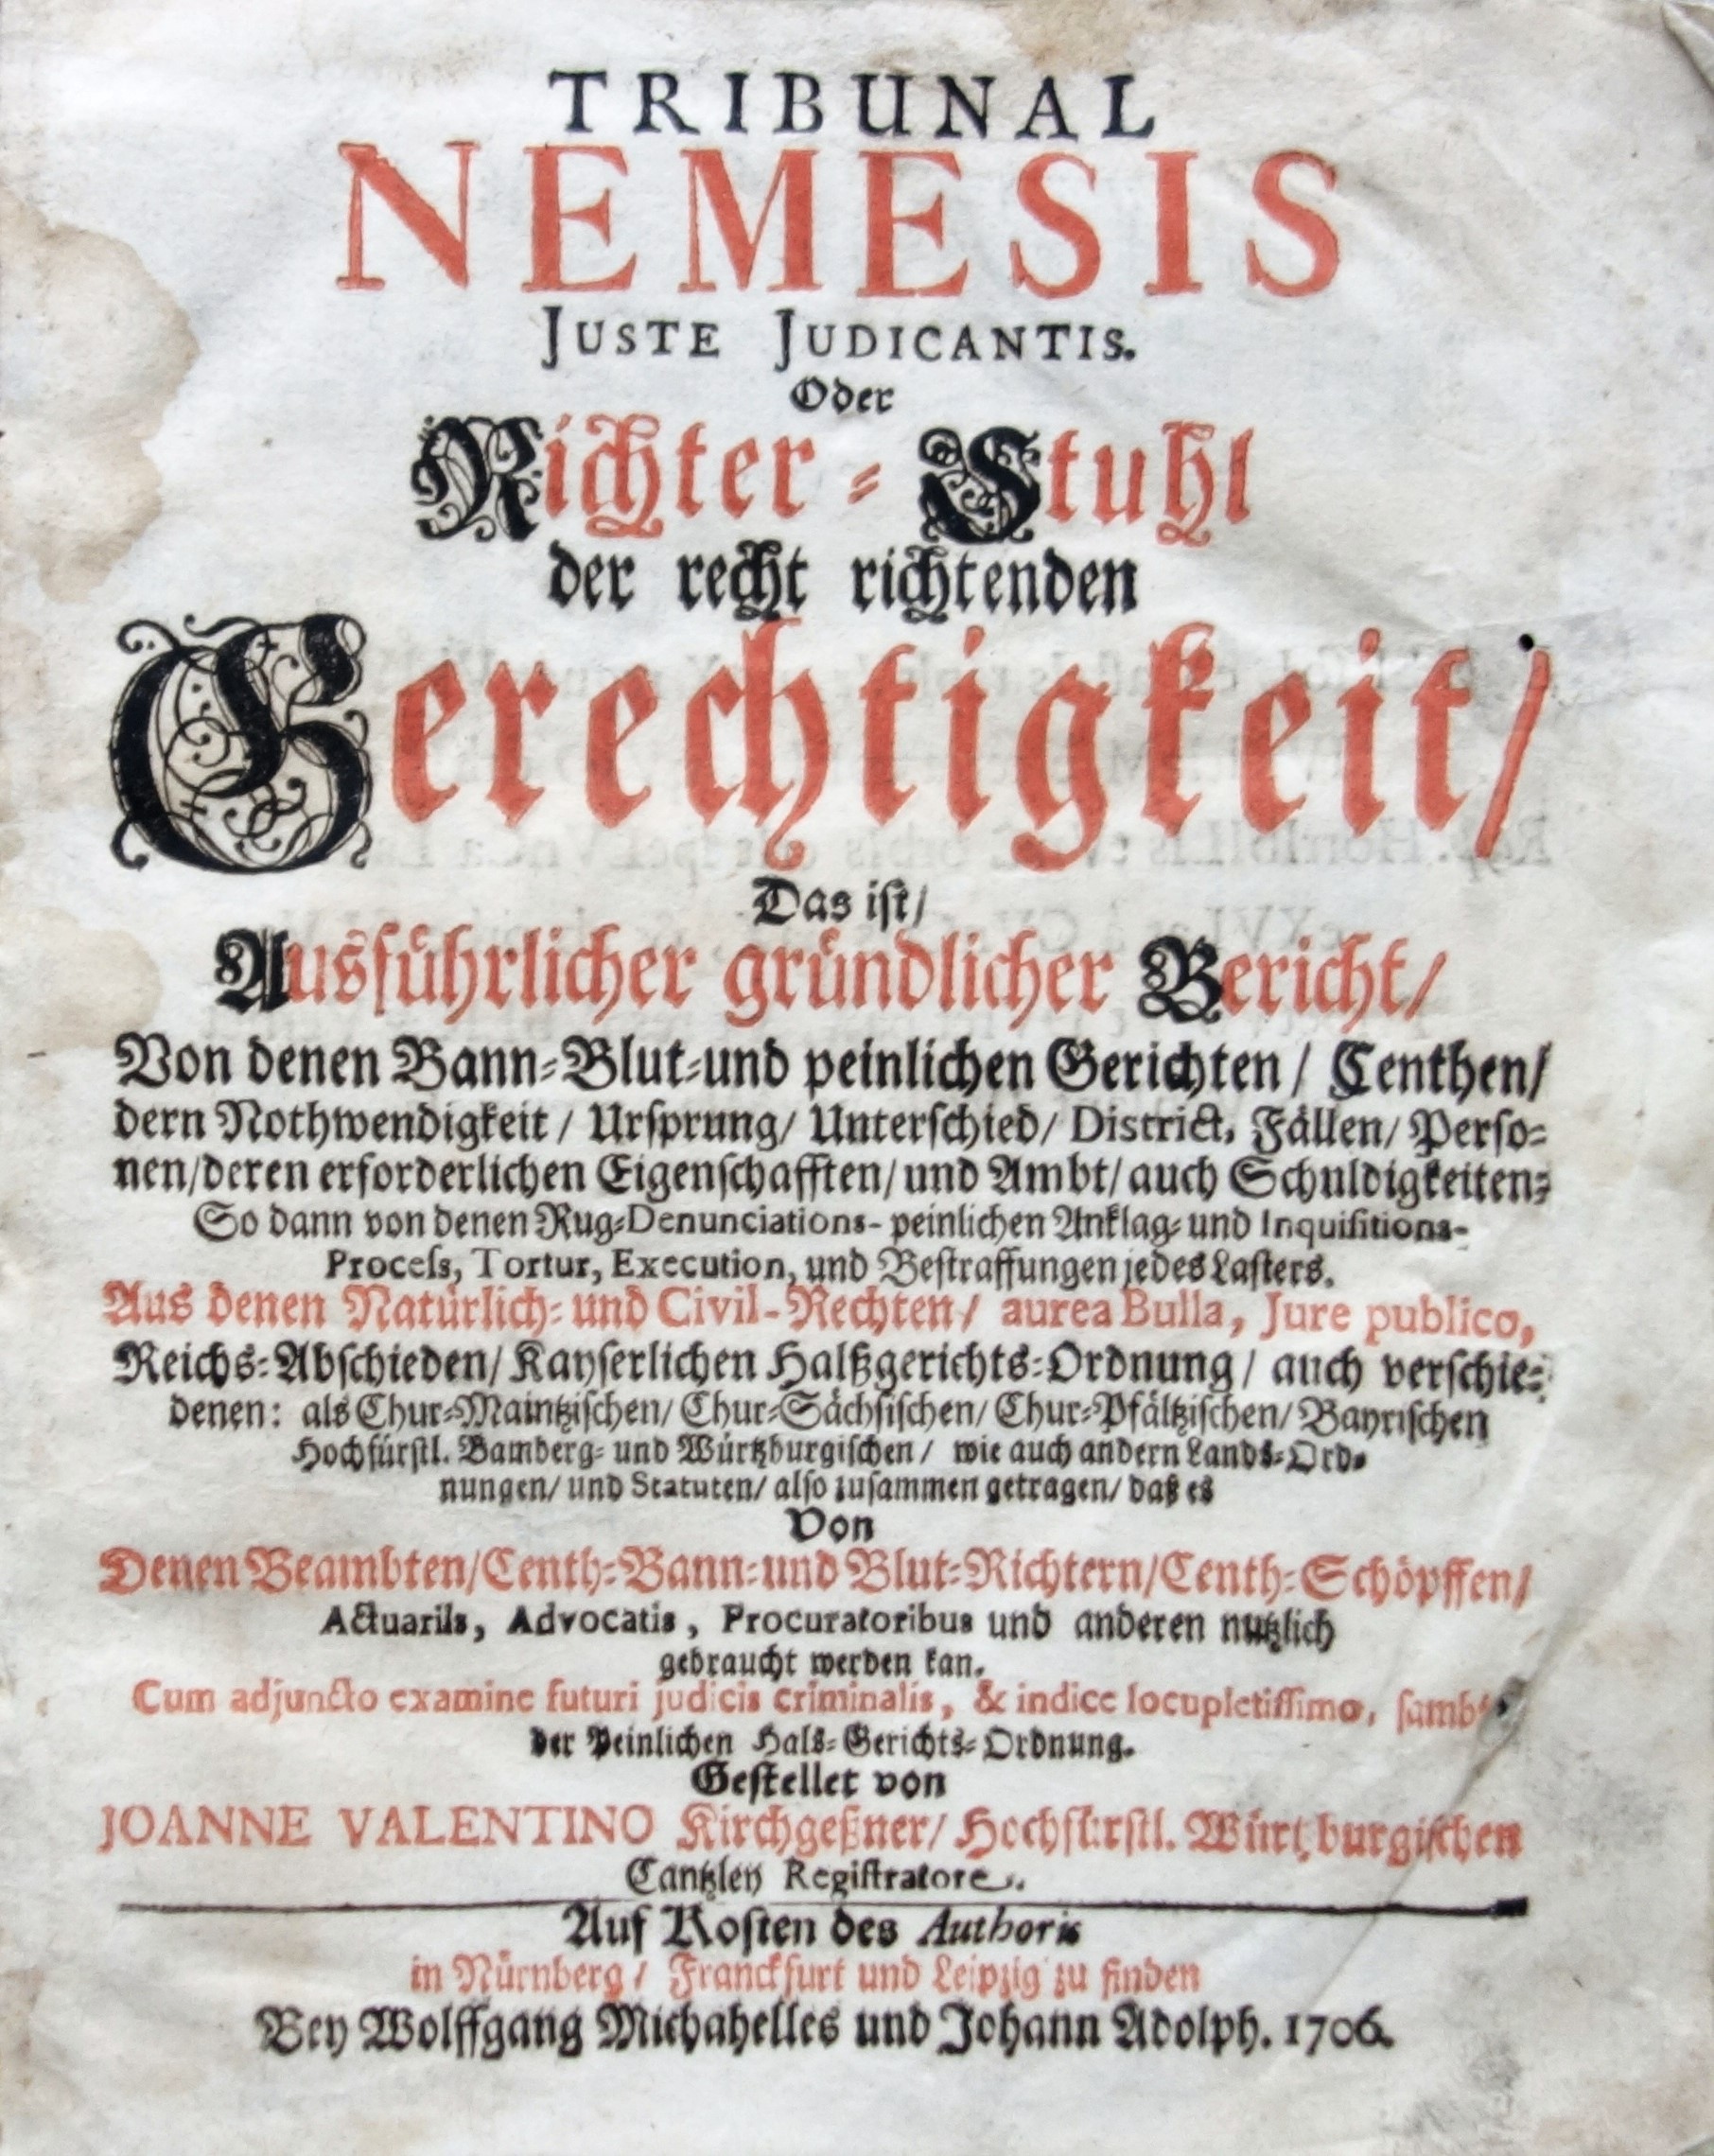 TRIBUNAL
NEMESIS
JUSTE JUDICANTIS.
Oder
Richter-Stuhl
der recht richtenden
Gerechtigkeit/
Das ist/
Ausführlicher gründlicher Bericht/
Von denen Bann-Blut-und peinlichen Gerichten / Centhen/
dern Nothwendigkeit / Ursprung/ Unterschied/ District, Fällen/ Perso-
nen/deren erforderlichen Eigenschafften/ und Ambt/ auch Schuldigkeiten-
So dann von denen Rug-Denunciations- peinlichen Anklag- und Inquisitions-
Process, Tortur, Execution, und Bestraffungen jedes Lasters.
Aus denen Natürlich- und Civil-Rechten/ aurea Bulla, Jure publico,
Reichs-Abschieden/ Kayserlichen Halßgerichts-Ordnung/ auch verschie-
denen: als Chur-Maintzischen/ Chur-Sächsischen/ Chur-Pfältzischen/ Bayrischen
Hochfürstl. Bamberg- und Würtzburgischen/ wie auch andern Lands-Ord-
nungen/ und Statuten/ also zusammen getragen/ daß es
Von
Denen Beambten/Centh-Bann-und Blut-Richtern/Centh-Schöpffen/
Actuariis, Advocatis, Procuratoribus und anderen nutzlich
gebraucht werden kan.
Cum adjuncto examine futuri judicis criminalis, & indice locupletissimo, sambt
der Peinlichen Hals-Gerichts-Ordnung.
Gestellet von
JOANNE VALENTINO Kirchgeßner/ Hochfürstl. Würtzburgischen
Cantzley Registratore.
Auf Kosten des Authoris
in Nürnberg/ Franckfurt und Leipzig zu finden
Bey Wolffgang Michahelles und Johann Adolph. 1706.